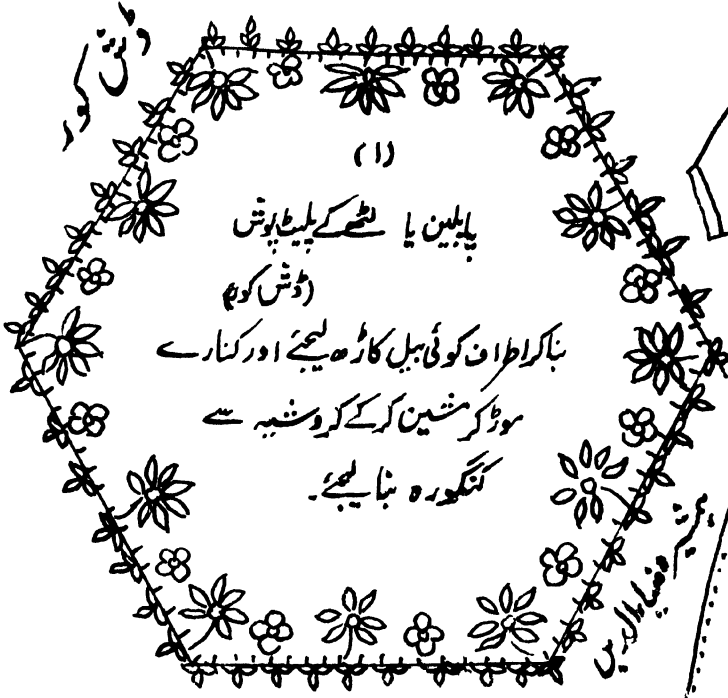 ڈش کور
(۱)
پاپلین یا لٹھے کے پلیٹ پوش
(ڈش کور)
بنا کر اطراف کوئی بیل کاڑھ لیجئے اور کنارے
موڑ کر مشین کر کے کروشیہ سے
کنگورہ بنا لیجئے۔
ضیاء الدین